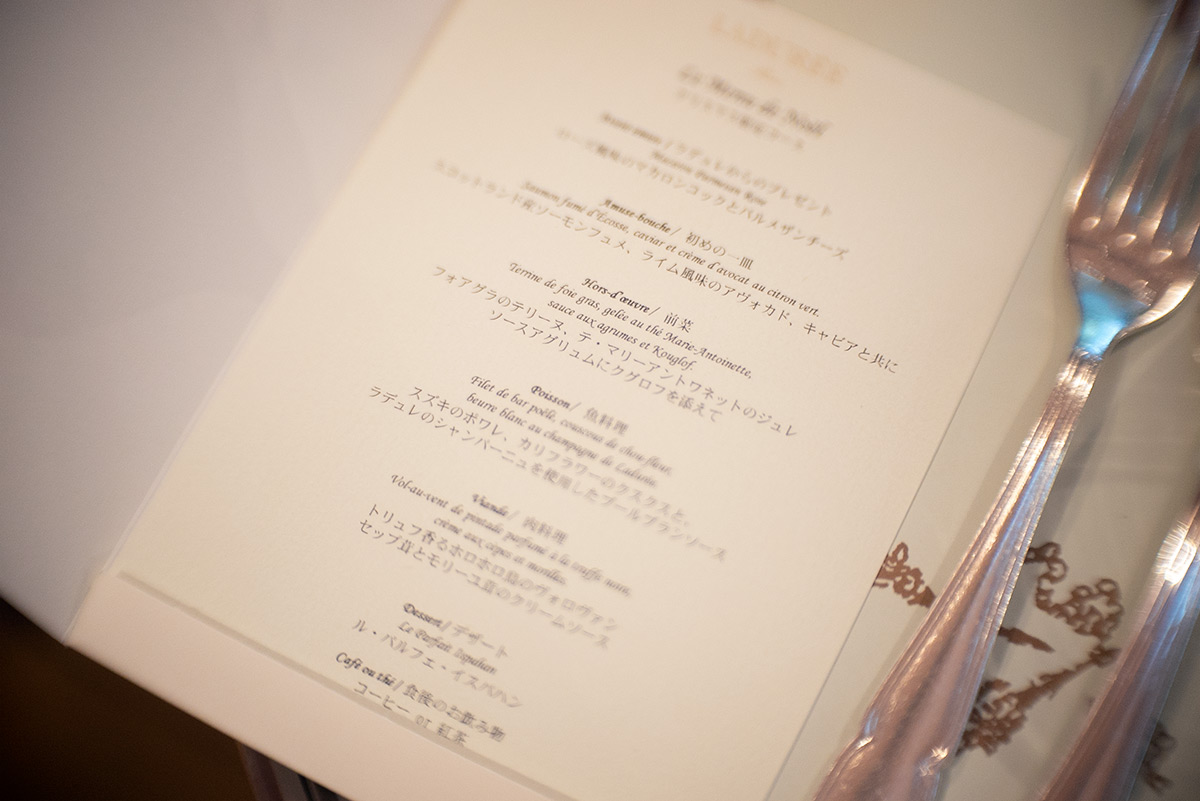 LADURÉE
Le Menu de Noël
クリスマス限定コース
Avant-goût / ラデュレからのプレゼント
Macaron Parmesan Rose
ローズ風味のマカロンコックとパルメザンチーズ
Amuse-bouche / 初めの一皿
Saumon fumé d'Écosse, caviar et crème d'avocat au citron vert.
スコットランド産ソーモンフュメ、ライム風味のアヴォカド、キャビアと共に
Hors-d'œuvre / 前菜
Terrine de foie gras, gelée au thé Marie-Antoinette,
sauce aux agrumes et Kouglof.
フォアグラのテリーヌ、テ・マリーアントワネットのジュレ
ソースアグリュムにクグロフを添えて
Poisson / 魚料理
Filet de bar poêlé, couscous de chou-fleur,
beurre blanc au champagne de Ladurée.
スズキのポワレ、カリフラワーのクスクスと、
ラデュレのシャンパーニュを使用したブールブランソース
Viande / 肉料理
Vol-au-vent de pintade parfumé à la truffe noire,
crème aux cèpes et morilles.
トリュフ香るホロホロ鳥のヴォロヴァン
セップ茸とモリーユ茸のクリームソース
Dessert / デザート
Le Parfait Ispahan
ル・パルフェ・イスパハン
Café ou thé / 食後のお飲み物
コーヒー or 紅茶